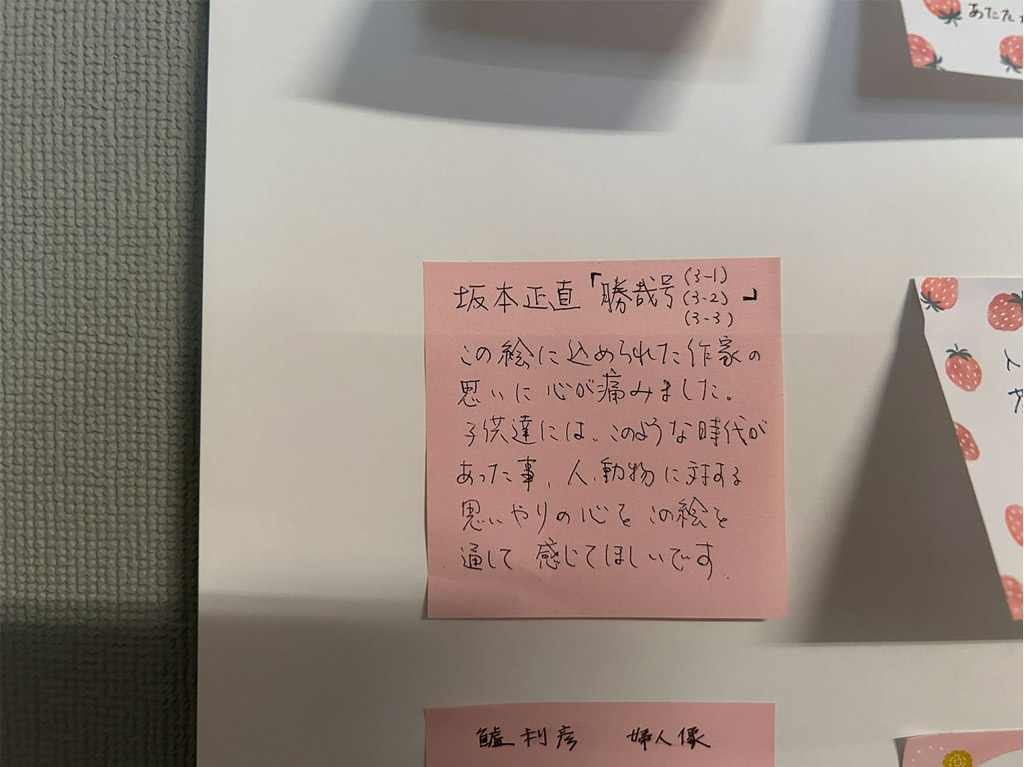 あたたか
坂本正直「勝哉号(3-1)(3-2)(3-3)」
この絵に込められた作家の
思いに心が痛みました。
子供達には、このような時代が
あった事、人、動物に対する
思いやりの心をこの絵を
通して感じてほしいです
鱸利彦 婦人像